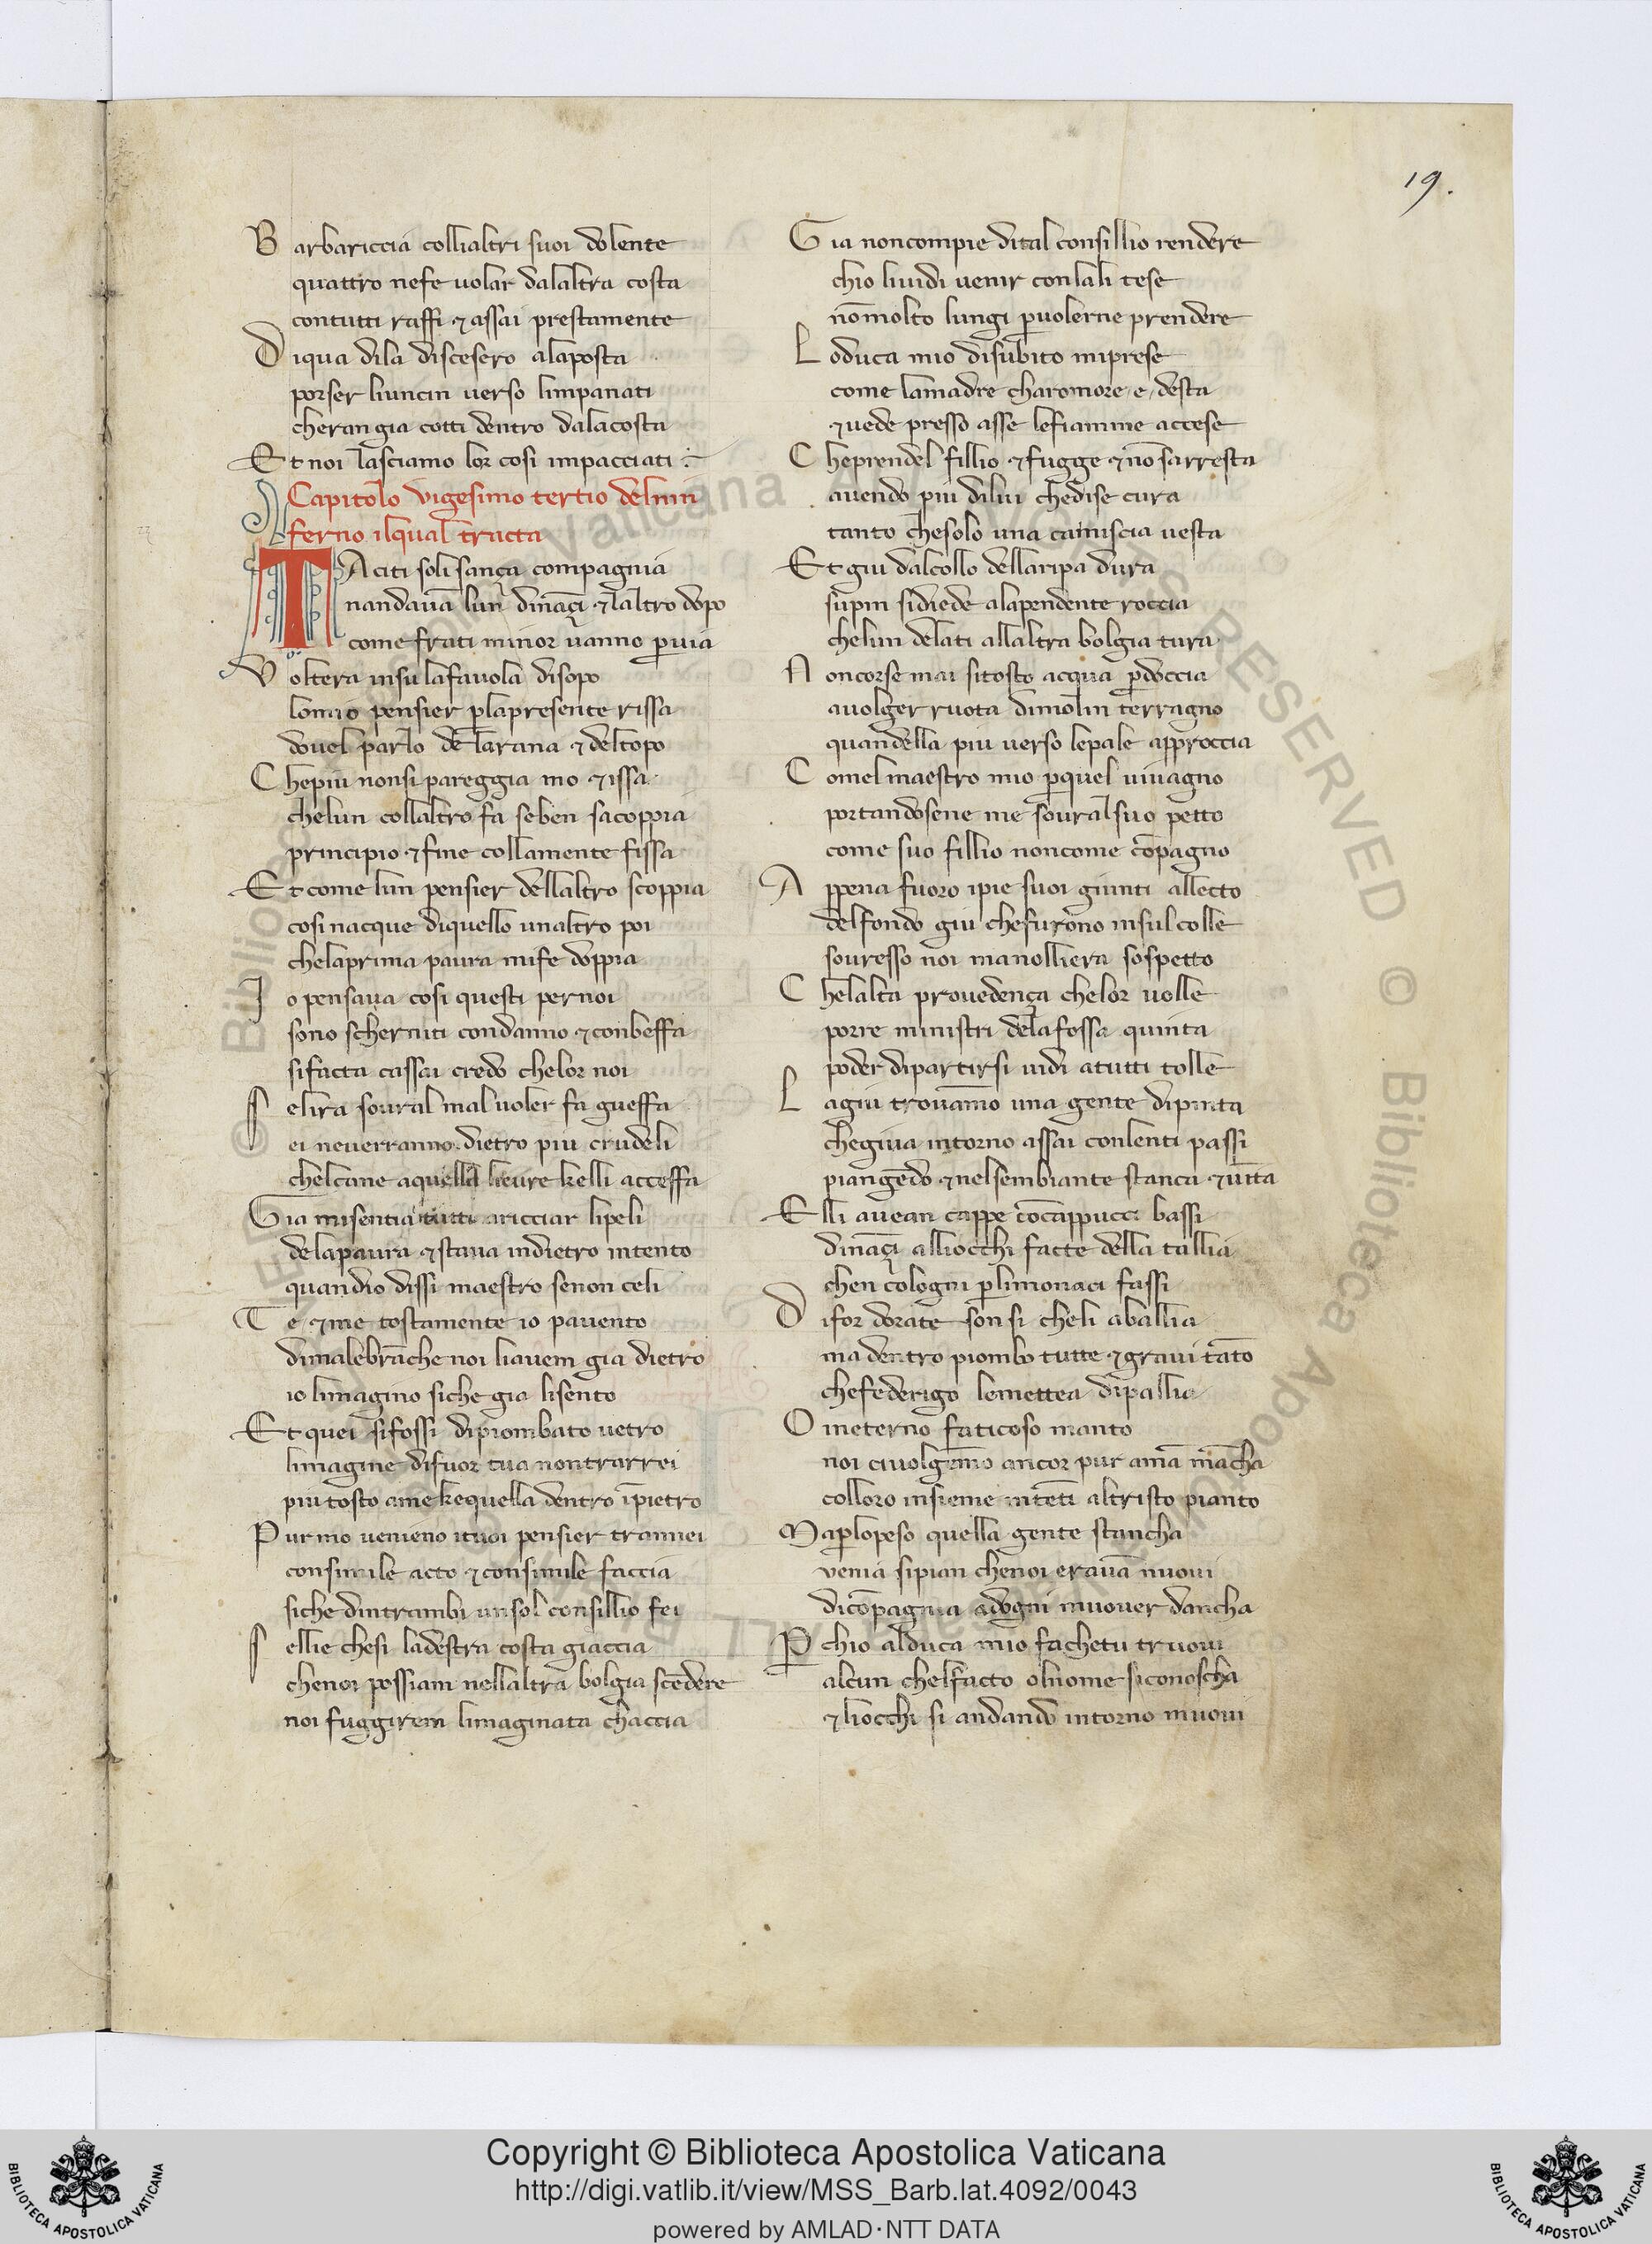 19.
Barbariccia collialtri suoi dolente
quattro nefe uolar dalaltra costa
contutti raffi ⁊ assai prestamente
Diqua dila discesero alaposta
porser liuncin uerso limpanati
cheran gia cotti dentro dalacosta
Et noi lasciamo lor cosi impacciati :
Capitolo vigesimo tertio delinin
ferno ilqual tracta
TAciti soli sança compagnia
nandauã lun dinãçi ⁊ laltro dopo
come frati minor uanno p̱uia
Voltera insu lafauola disopo
lomio pensier p̱lapresente rissa
douel parlo delarana ⁊ deltopo
Chepiu nonsi pareggia mo ⁊ issa
chelun collaltro fa seben sacoppia
principio ⁊ fine collamente fissa
Et come lun pensier dellaltro scoppia
cosi nacque diquello unaltro poi
chelaprima paura mife doppia
Io pensaua cosi questi pernoi
sono scherniti condanno ⁊ conbeffa
sifacta cassai credo chelor noi
Selira soural mal uoler fa gueffa
ei neuerranno dietro piu crudeli
chelcane aquella lieure kelli acceffa
Gia misentia tutti aricciar lipeli
delapaura ⁊ staua indietro intento
quandio dissi maestro senon celi
Te ⁊ me tostamente io pauento
dimalebrãche noi liauem gia dietro
io limagino siche gia lisento
Et quei sifossi dipiombato uetro
limagine difuor tua nontrarrei
piu tosto ame kequella dentro ĩpietro
Pur mo uenieno ituoi pensier tramiei
consimile acto ⁊ consimile faccia
siche dintrambi unsol consillio fei
Sellie chesi ladestra costa giaccia
chenoi possiam nellaltra bolgia scẽdere
noi fuggirem limaginata chaccia
Gia noncompie dital consillio rendere
chio liuidi uenir conlali tese
nõmolto lungi p̱uolerne prendere
Loduca mio disubito miprese
come lamadre charomore e desta
⁊ uede presso asse lefiamme accese
Cheprendel fillio ⁊ fugge ⁊ nõ sarresta
auendo piu dilui chedise cura
tanto chesolo una camiscia uesta
Et giu dalcollo dellaripa dura
supin sidiede alapendente roccia
chelun delati allaltra bolgia tura
Noncorse mai sitosto acqua p̱doccia
auolger ruota dimolin terragno
quandella piu uerso lepale approccia
Comel maestro mio p̱quel uiuagno
portandosene me soural suo petto
come suo fillio noncome cõpagno
Appena fuoro ipie suoi giunti allecto
delfondo giu chefurono insul colle
souresso noi manolliera sospetto
Chelalta prouedença chelor uolle
porre ministri delafossa quinta
poder dipartirsi indi atutti tolle
Lagiu trouamo una gente dipinta
chegiua intorno assai conlenti passi
piangẽdo ⁊ nelsembiante stanca ⁊ uĩta
Elli auean cappe cõcappucci bassi
dinãçi alliocchi facte della tallia
chen cologni p̱limonaci fassi
Difor dorate son si cheli aballia
ma dentro piombo tutte ⁊ graui tãto
chefederigo lemettea dipallia
O ineterno faticoso manto
noi ciuolgemo ancor pur amã mãcha
colloro insieme intẽti altristo pianto
Map̱lopeso quella gente stancha
venia sipian chenoi erauã nuoui
dicõpagnia adogni muouer dancha
P̱chio alduca mio fachetu truoui
alcun chelfacto olnome siconoscha
⁊ liocchi si andando intorno muoui
Copyright © Biblioteca Apostolica Vaticana
http://digi.vatlib.it/view/MSS_Barb.lat.4092/0043
powered by AMLAD·NTT DATA
BIBLIOTECA APOSTOLICA VATICANA
BIBLIOTECA APOSTOLICA VATICANA